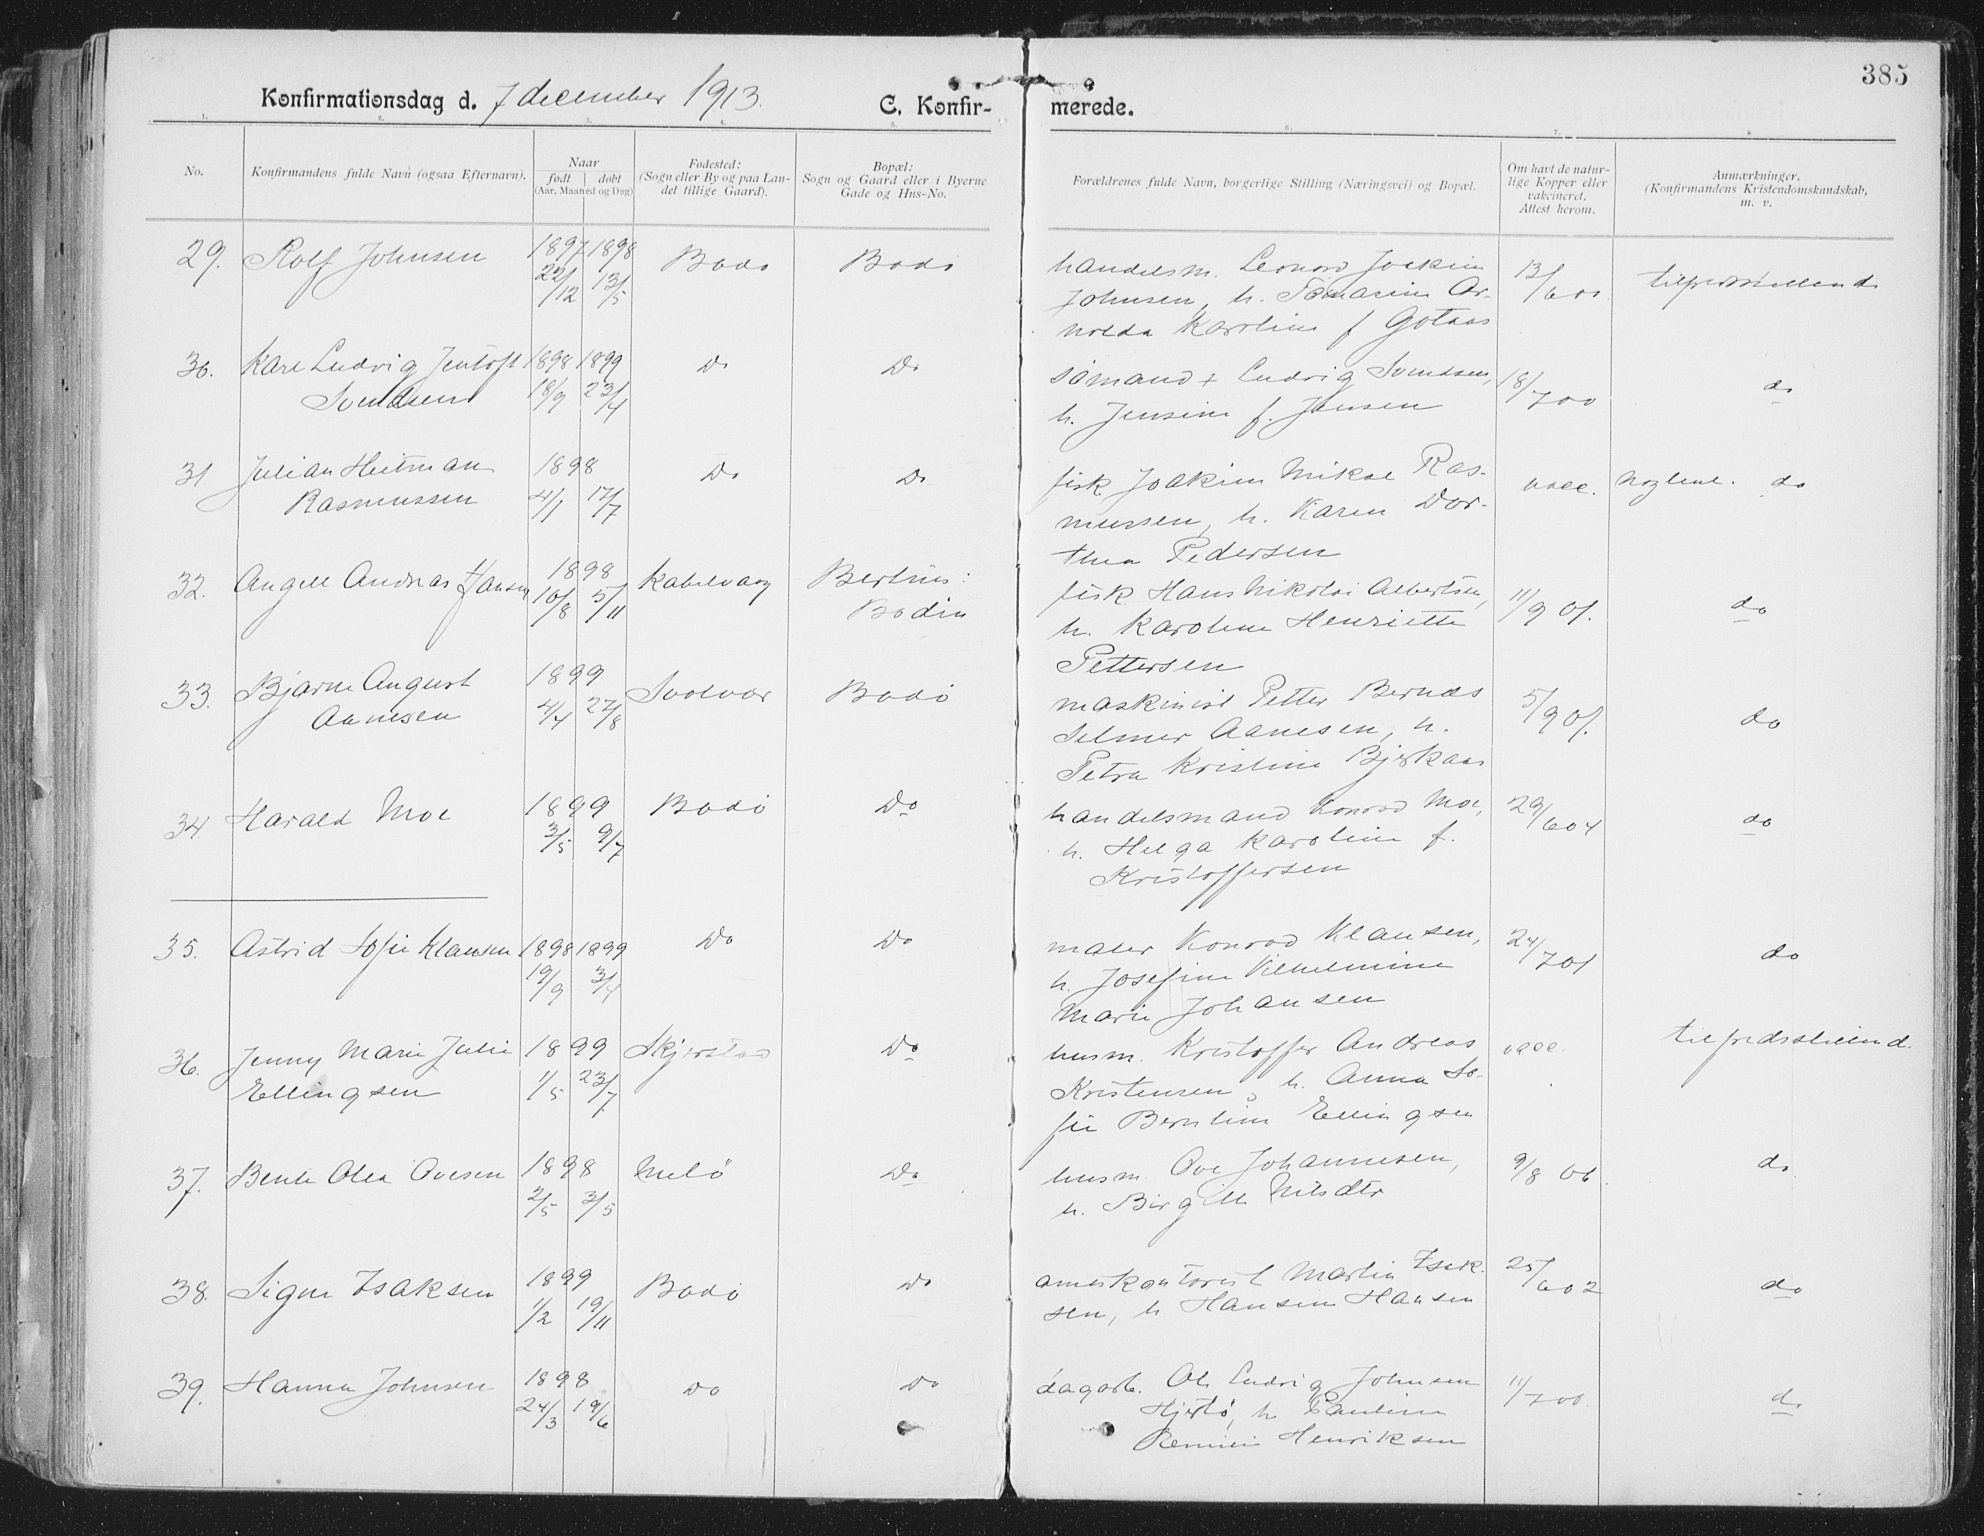 385
Konfirmationsdag d. 7 december 1913. C. Konfir- merede.
1. 2. 3. 4. 5. 6. 7. 8.
No.
Konfirmandens fulde Navn (ogsaa Efternavn).
Naar
født døbt
(Aar, Maaned og Dag)
Fødested:
(Sogn eller By og paa Lan-
det tillige Gaard).
Bopæl:
Sogn og Gaard eller i Byerne
Gade og Hus-No.
Forældrenes fulde Navn, borgerlige Stilling (Næringsvei) og Bopæl.
Om havt de natur-
lige Kopper eller
vakcineret.
Attest herom.
Anmærkninger.
(Konfirmandens Kristendomskundskab,
m. v.
29. Rolf Johnsen 1897 22/12 1898 13/5 Bodø Bodø
handelsm. Leonard Joakim
Johnsen, h. Ar-
nolda Karoline f Gotaas
13/6 00. tilfredsstillend
30. Karl Ludvig Jentoft
Svendsen
1898 18/9 1899 23/4 Do Do
sømand + Ludvig Svendsen,
h. Jensine f. Jensen
18/7 00 do
31 Julian Heitman
Rasmussen
1898 4/1 17/7 Do Do
fisk. Joakim Mikal Ras-
mussen, h. Karen Dor-
thea Pedersen
vacc. nogenl. do
32. Angell Andreas Hansen 1898 10/8 5/11 Kabelvaag
Bertnes:
Bodin
fisk. Hans Nikolai Albertsen,
h. Karoline Henriette
Pettersen
11/9 01. do
33. Bjarne August
Aanesen
1899 4/4 27/8 Svolvær Bodø
maskinist Petter Bernås
Selmer Aanesen, h.
Petra Kristine Bjerkaas
5/9 01. do
34. Harald Moe 1899 3/5 9/7 Bodø Do
handelsmand Konrad Moe,
h. Helga Karoline f.
Kristoffersen
29/6 04 do
35. Astrid Sofie Klausen 1898 19/9 1899 3/4 Do Do
maler Konrad Klausen,
h. Josefine Vilhelmine
Marie Johansen
24/7 01 do
36. Jenny Marie Julie
Ellingsen
1899 1/5 23/7 Skjerstad Do
husm. Kristoffer Andreas
Kristensen, h. Anna So-
fie Berntine Ellingsen
vacc. tilfredsstillend.
37. Bente Olea Ovesen 1898 2/5 3/5 Melø Do
husm. Ove Johannesen,
h. Birgitte Nilsdtr
9/8 06. do
38. Signe Isaksen 1899 1/2 19/11 Bodø Do
amtskontorist Martin Isak-
sen, h Hansine Hansen
25/6 02 do
39. Hanna Johnsen 1898 24/3 19/6 Do Do
dagarb. Ole Ludvig Johnsen
Hjertø, h. Pauline
Henriksen
11/7 00. do